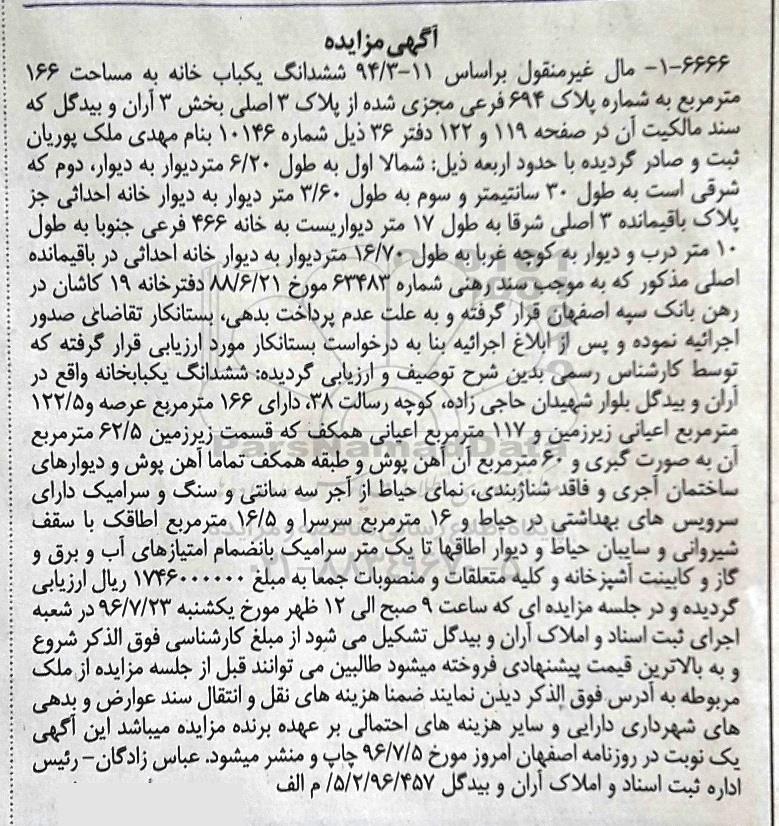 آگهی مزایده
۶۶۶۶-۱- مال غیرمنقول براساس ۱۱-۹۴/۳ ششدانگ یکباب خانه به مساحت ۱۶۶
مترمربع به شماره پلاک ۶۹۴ فرعی مجزی شده از پلاک ۳ اصلی بخش ۳ آران و بیدگل که
سند مالکیت آن در صفحه ۱۱۹ و ۱۲۲ دفتر ۳۶ ذیل شماره ۱۰۱۴۶ بنام مهدی ملک پوریان
ثبت و صادر گردیده با حدود اربعه ذیل: شمالا اول به طول ۶/۲۰ متردیوار به دیوار، دوم که
شرقی است به طول ۳۰ سانتیمتر و سوم به طول ۳/۶۰ متر دیوار به دیوار خانه احداثی جز
پلاک باقیمانده ۳ اصلی شرقا به طول ۱۷ متر دیواریست به خانه ۴۶۶ فرعی جنوبا به طول
۱۰ متر درب و دیوار به کوچه غربا به طول ۱۶/۷۰ متردیوار به دیوار خانه احداثی در باقیمانده
اصلی مذکور که به موجب سند رهنی شماره ۶۳۴۸۳ مورخ ۸۸/۶/۲۱ دفترخانه ۱۹ کاشان در
رهن بانک سپه اصفهان قرار گرفته و به علت عدم پرداخت بدهی، بستانکار تقاضای صدور
اجرائیه نموده و پس از ابلاغ اجرائیه بنا به درخواست بستانکار مورد ارزیابی قرار گرفته که
توسط کارشناس رسمی بدین شرح توصیف و ارزیابی گردیده: ششدانگ یکبابخانه واقع در
آران و بیدگل بلوار شهیدان حاجی زاده، کوچه رسالت ۳۸، دارای ۱۶۶ مترمربع عرصه و۱۲۲/۵
مترمربع اعیانی زیرزمین و ۱۱۷ مترمربع اعیانی همکف که قسمت زیرزمین ۶۲/۵ مترمربع
آن به صورت گبری و ۶۰مترمربع آن آهن پوش و طبقه همکف تماما آهن پوش و دیوارهای
ساختمان آجری و فاقد شناژبندی، نمای حیاط از آجر سه سانتی و سنگ و سرامیک دارای
سرویس های بهداشتی در حیاط و ۱۶ مترمربع سرسرا و ۱۶/۵ مترمربع اطاقک با سقف
شیروانی و سایبان حیاط و دیوار اطاقها تا یک متر سرامیک بانضمام امتیازهای آب و برق و
گاز و کابینت آشپزخانه و کلیه متعلقات و منصوبات جمعا به مبلغ ۱۷۴۶۰۰۰۰۰۰ ریال ارزیابی
گردیده و در جلسه مزایده ای که ساعت ۹ صبح الی ۱۲ ظهر مورخ یکشنبه ۹۶/۷/۲۳ در شعبه
اجرای ثبت اسناد و املاک آران و بیدگل تشکیل می شود از مبلغ کارشناسی فوق الذکر شروع
و به بالاترین قیمت پیشنهادی فروخته میشود طالبین می توانند قبل از جلسه مزایده از ملک
مربوطه به آدرس فوق الذکر دیدن نمایند ضمنا هزینه های نقل و انتقال سند عوارض و بدهی
های شهرداری دارایی و سایر هزینه های احتمالی بر عهده برنده مزایده میباشد این آگهی
یک نوبت در روزنامه اصفهان امروز مورخ ۹۶/۷/۵ چاپ و منشر میشود. عباس زادگان- رئیس
اداره ثبت اسناد و املاک آران و بیدگل ۵/۲/۹۶/۴۵۷/ م الف